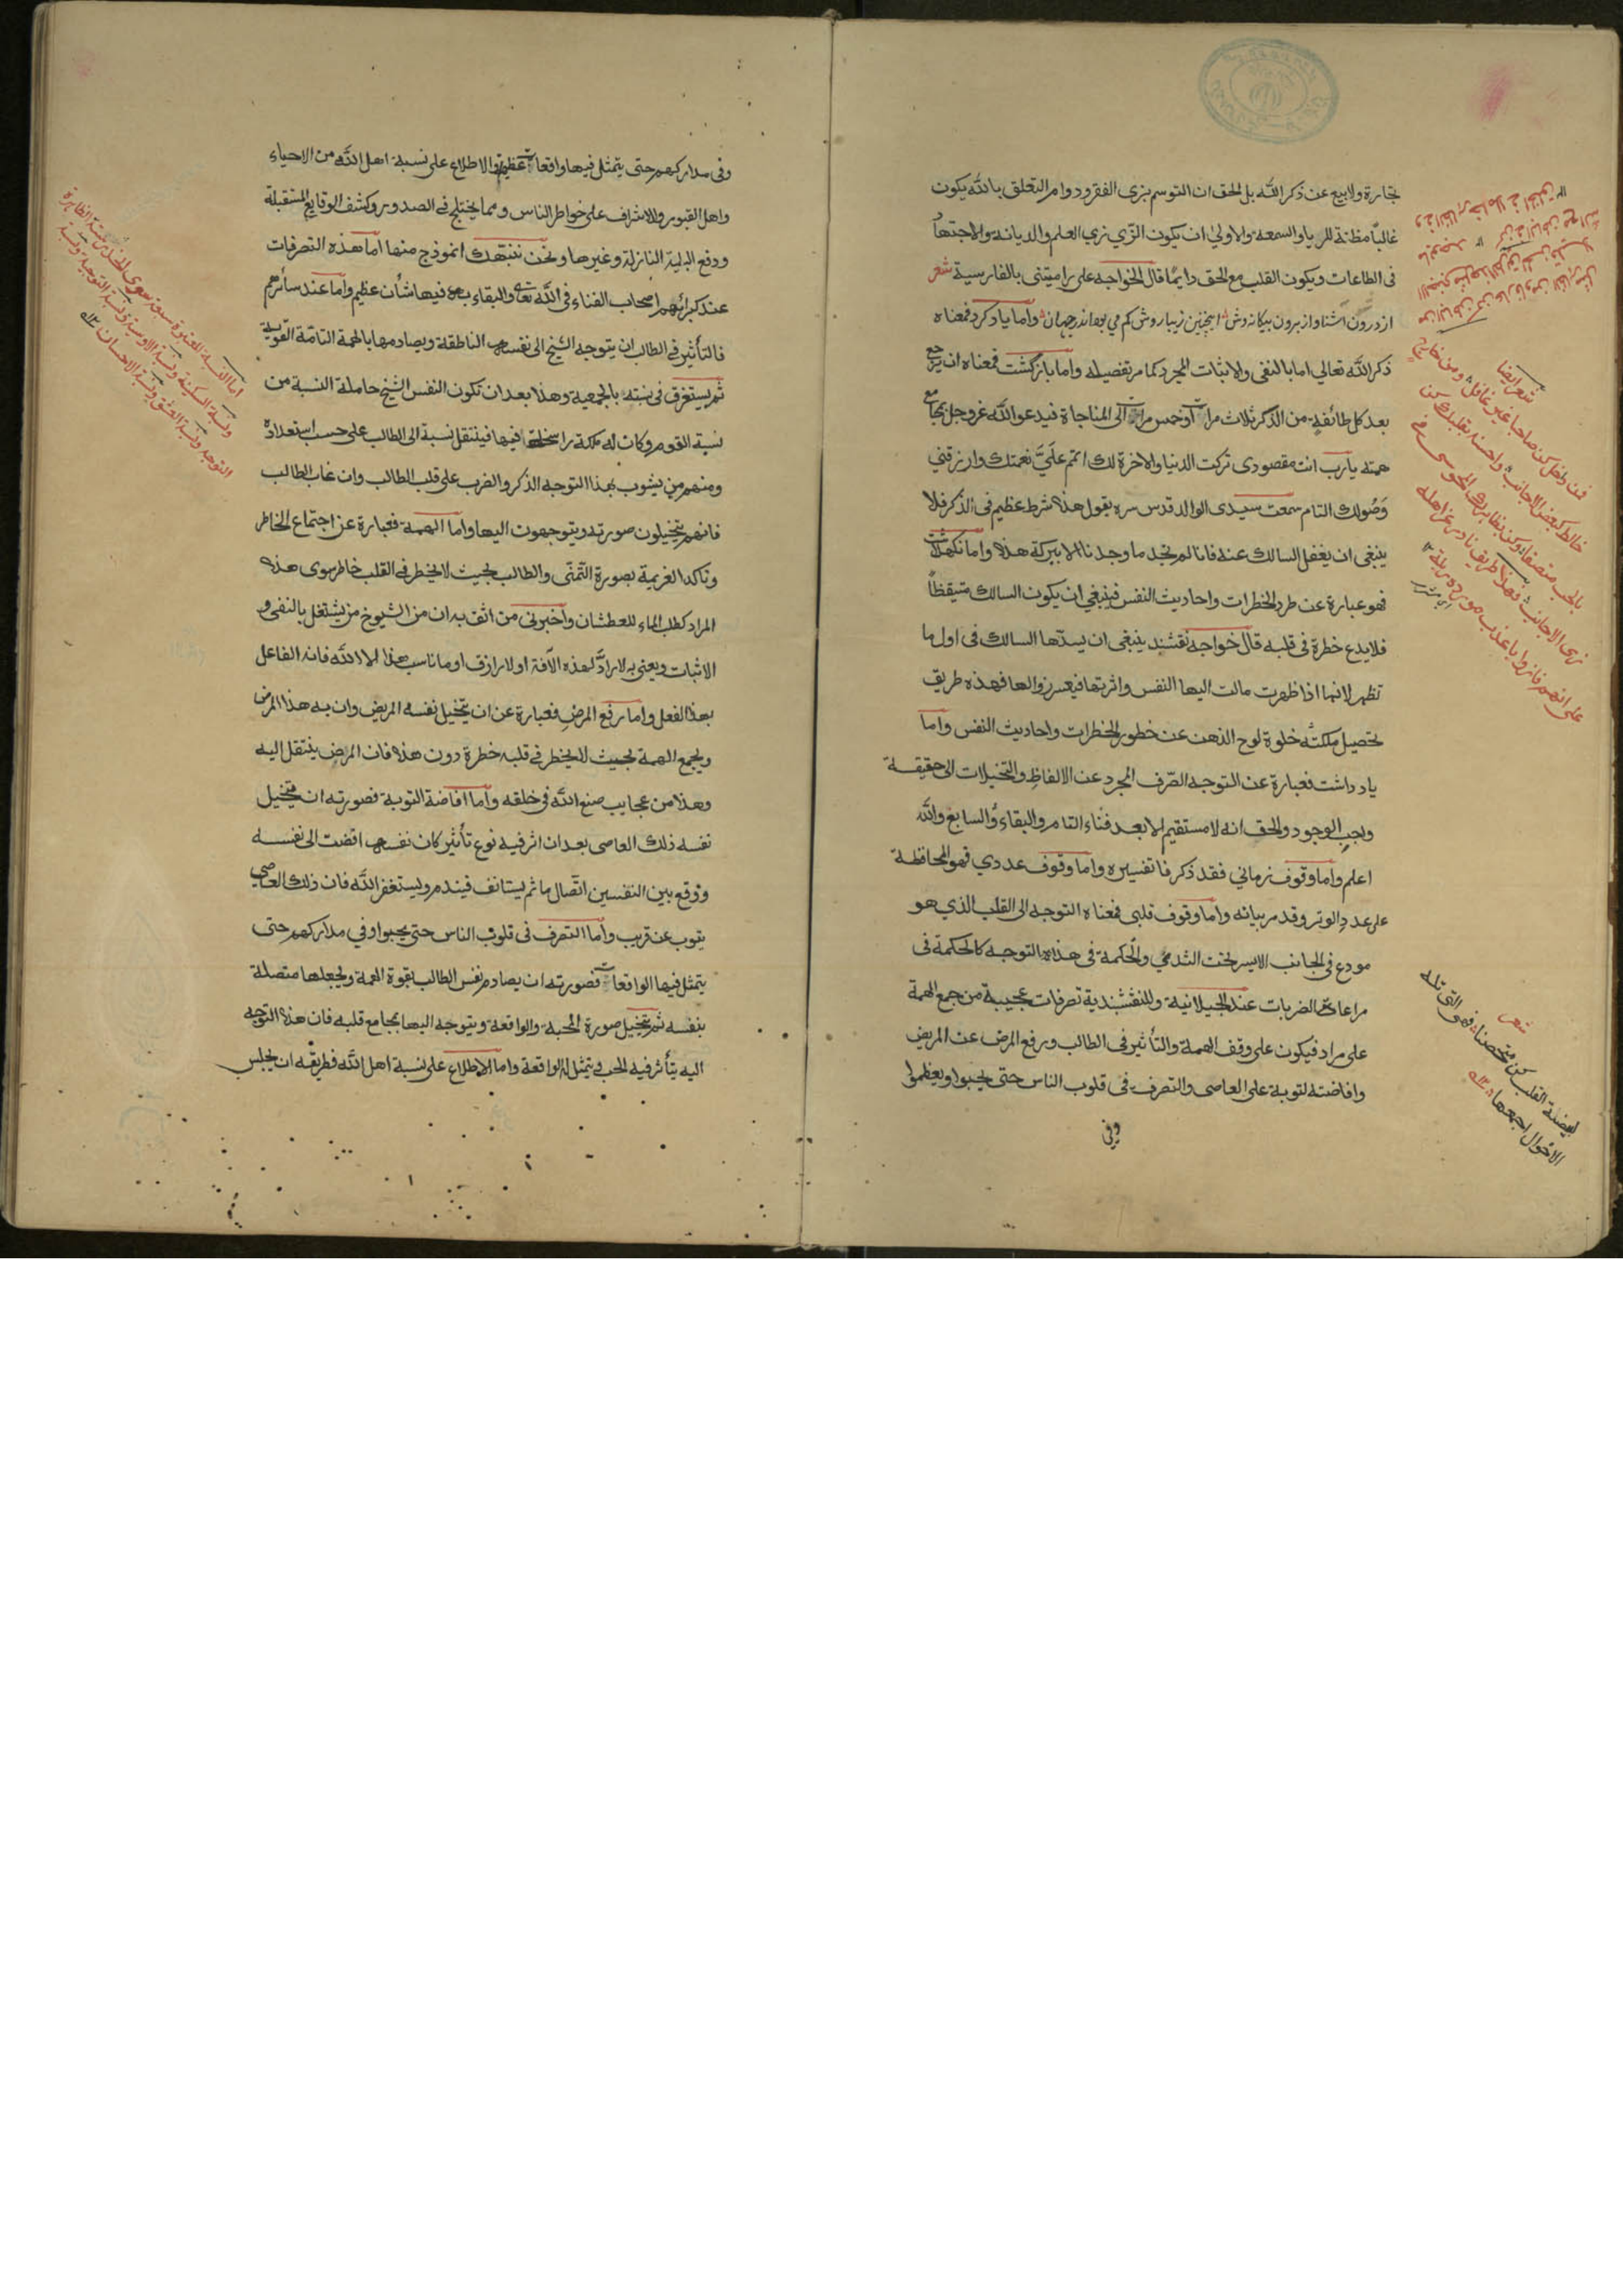 تجارة ولابيع عن ذكر الله بل الحق ان التوسم بزي الفقر ودوام التعلق بالله يكون
غالبًا مظنة للريا والسمعة والاولى ان يكون الزّي زي العلم والديانة والاجتهاد
فى الطاعات ويكون القلب مع الحق دايمًا قال الخواجه على راميتنى بالفارسية شعر
از درون اشنا واز برون بيكانه وش اينچنين زيبا روش كم مي بود اندر جهان واما ياد كرد فمعناه
ذكر الله تعالي اما بالنفى والاثبات المجرد كما مر تفصيله واما باز گشت فمعناه ان يرجع
بعد كل طائفة من الذكر ثلاث مرات او خمس مرات الى المناجاة فيدعو الله عز وجل بمجامع
همته يارب انت مقصودى تركت الدنيا والاخرة لك اتمم علَيَّ نعمتك وارزقني
وَصُولك التام سمعت سيدى الوالد قدس سره يقول هذا شرط عظيم فى الذكر فلا
ينبغى ان يغفل السالك عنه فانا لم نجد ما وجدنا الا ببركة هذا واما نگهداشت
فهو عبارة عن طرد الخطرات واحاديث النفس فينبغي ان يكون السالك متيقظاً
فلايدع خطرة فى قلبه قال خواجه نقشبند ينبغى ان يسدّها السالك فى اول ما
تظهر لانها اذا ظهرت مالت اليها النفس واثرتها فيعسر زوالها فهذه طريق
تحصيل ملكة خلوة لوح الذهن عن خطور الخطرات واحاديث النفس واما
ياد داشت فعبارة عن التوجه الصّرف المجرد عن الالفاظ والتخيلات الى حقيقة
وجب الوجود والحق انه لا مستقيم الا بعد فناء التام والبقاء والسابغ والله
اعلم واما وقوف زماني فقد ذكرنا تفسيره واما وقوف عددي فهو المحافظة
على عدد الوتر وقد مر بيانه واما وقوف قلبى فمعناه التوجه الى القلب الذي هو
مودع فى الجانب الايسر تحت الثدي والحكمة فى هذه التوجه كالحكمة فى
مراعاة الضربات عند الجيلانية وللنقشبندية تصرفات عجيبة من جمع الهمة
على مراد فيكون على وقف الهمة والتأثير فى الطالب ورفع المرض عن المريض
وافاضته لتوبة على العاصى والتصرف فى قلوب الناس حتى يحبوا ويعظموا
وفي
شعر ايضا
فمن داخل كن صاحبا غير غافل ومن خارج
خالط كبعض الاجانب
شعر
لبيضة القلب كن محتضنا فهو التى تلد
الاحوال اجمعها
وفى مداركهم حتى يتمثل فيها واقعات عظيم والاطلاع على نسبة اهل الله من الاحياء
واهل القبور والاشراف على خواطر الناس ومما يختلج فى الصدور وكشف الوقايع المستقبلة
ودفع البلية النازلة وغيرها ونحن ننبّهك انموذج منها اما هذه التصرفات
عند كبرائهم اصحاب الفناء فى الله تعالى والبقاء به فيها شأن عظيم واما عند سائرهم
فالتأثير فى الطالب ان يتوجه الشيخ الى نفسه الناطقة ويصادمها بالهمة التامّة القويّة
ثم يستغرق فى نسبته بالجمعية وهذا بعد ان تكون النفس الشيخ حاملة النسبة من
نسبة القوم وكان له ملكة راسخة فيها فينتقل نسبة الى الطالب على حسب استعداده
ومنهم من يشوب بهذا التوجه الذكر والضرب على قلب الطالب وان غاب الطالب
فانهم يتخيلون صورته ويتوجهون اليها واما الهمة فعبارة عن اجتماع الخاطر
وتاكد العزيمة بصورة التمنّى والطالب بحيث لا يخطر فى القلب خاطر سوى هذه
المراد كطلب الماء للعطشان واخبرنى من اثق به ان من الشيوخ من يشتغل بالنفى و
الاثبات ويعنى به لا رادَّ لهذه الآفة او لا رازق او ما ناسب هذا الا الله فانه الفاعل
بهذا الفعل واما رفع المرض فعبارة عن ان يتخيل نفسه المريض وان به هذا المرض
ويجمع الهمة بحيث لا يخطر فى قلبه خطرة دون هذا فان المرض ينتقل اليه
وهذا من عجايب صنع الله فى خلقه واما افاضة التوبة فصورته ان يتخيل
نفسه ذلك العاصى بعد ان اثر فيه نوع تأثير كان نفسه افضت الى نفسه
ووقع بين النفسين اتّصال ما ثم يستانف فيندم ويستغفر الله فان ذلك العاصي
يتوب عن قريب واما التصرف فى قلوب الناس حتى يحبوا وفي مداركهم حتى
يتمثل فيها الواقعات فصورته ان يصادم نفس الطالب بقوة الهمة ويجعلها متصلة
بنفسه ثم يتخيل صورة المحبة والواقعة ويتوجه اليها بمجامع قلبه فان هذا التوجه
اليه يتأثر فيه الحب ويتمثل له الواقعة واما الاطلاع على نسبة اهل الله فطريقه ان يجلس